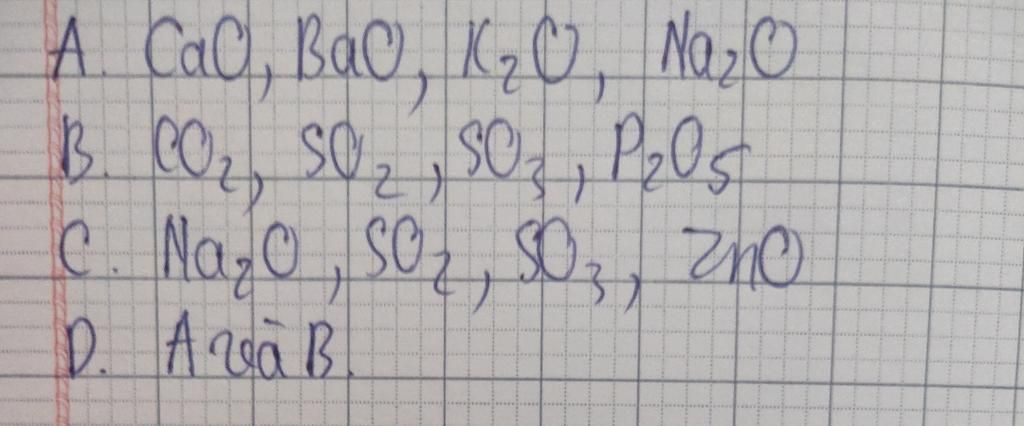 A. CaO, BaO, K₂O, Na₂O
B. CO₂, SO₂, SO₃, P₂O₅
C. Na₂O, SO₂, SO₃, ZnO
D. A và B.